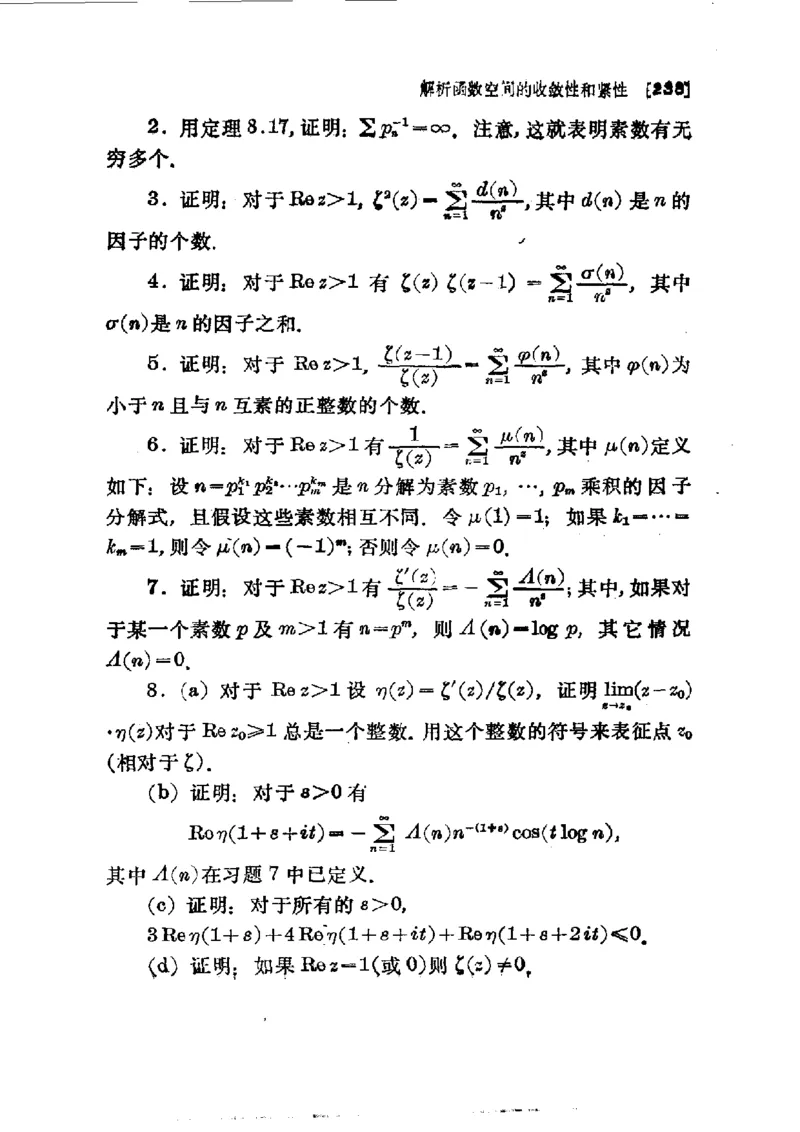 解析函数空间的收敛性和紧性 [238]
2. 用定理 8.17, 证明: Σp_n^{-1}=∞. 注意, 这就表明素数有无
穷多个.
3. 证明: 对于 Re z>1, ζ²(z)=∑_{n=1}^{∞} d(n)/n^z, 其中 d(n) 是 n 的
因子的个数.
4. 证明: 对于 Re z>1 有 ζ(z) ζ(z-1) = ∑_{n=1}^{∞} σ(n)/n^z, 其中
σ(n)是 n 的因子之和.
5. 证明: 对于 Re z>1, ζ(z-1)/ζ(z) = ∑_{n=1}^{∞} φ(n)/n^z, 其中 φ(n)为
小于 n 且与 n 互素的正整数的个数.
6. 证明: 对于 Re z>1 有 1/ζ(z) = ∑_{n=1}^{∞} μ(n)/n^z, 其中 μ(n)定义
如下: 设 n=p_1^{k_1} p_2^{k_2}…p_m^{k_m} 是 n 分解为素数 p_1, …, p_m 乘积的因子
分解式, 且假设这些素数相互不同. 令 μ(1)=1; 如果 k_1=…=
k_m=1, 则令 μ(n)=(-1)^m; 否则令 μ(n)=0.
7. 证明: 对于 Re z>1 有 ζ′(z)/ζ(z) = -∑_{n=1}^{∞} Λ(n)/n^z; 其中, 如果对
于某一个素数 p 及 m>1 有 n=p^m, 则 Λ(n)=log p, 其它情况
Λ(n)=0.
8. (a) 对于 Re z>1 设 η(z)=ζ′(z)/ζ(z), 证明 lim_{z→z_0}(z-z_0)
·η(z)对于 Re z_0⩾1 总是一个整数. 用这个整数的符号来表征点 z_0
(相对于 ζ).
(b) 证明: 对于 ε>0 有
Re η(1+ε+it) = -∑_{n=1}^{∞} Λ(n)n^{-(1+ε)} cos(t log n),
其中 Λ(n)在习题 7 中已定义.
(c) 证明: 对于所有的 ε>0,
3 Re η(1+ε)+4 Re η(1+ε+it)+Re η(1+ε+2it)⩽0.
(d) 证明: 如果 Re z=1(或 0)则 ζ(z)≠0.